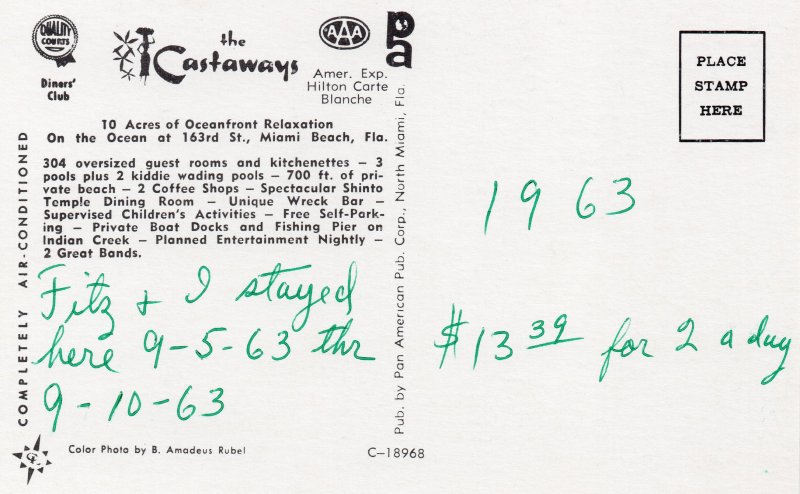 QUALITY
COURTS
Diners'
Club
the
Castaways
AAA
Amer. Exp.
Hilton Carte
Blanche
pa
PLACE
STAMP
HERE
10 Acres of Oceanfront Relaxation
On the Ocean at 163rd St., Miami Beach, Fla.
304 oversized guest rooms and kitchenettes – 3
pools plus 2 kiddie wading pools – 700 ft. of pri-
vate beach – 2 Coffee Shops – Spectacular Shinto
Temple Dining Room – Unique Wreck Bar –
Supervised Children's Activities – Free Self-Park-
ing – Private Boat Docks and Fishing Pier on
Indian Creek – Planned Entertainment Nightly –
2 Great Bands.
COMPLETELY AIR-CONDITIONED
Fitz + I stayed
here 9-5-63 thr
9-10-63
Color Photo by B. Amadeus Rubel
C-18968
Pub. by Pan American Pub. Corp., North Miami, Fla.
1963
$13 39 for 2 a day